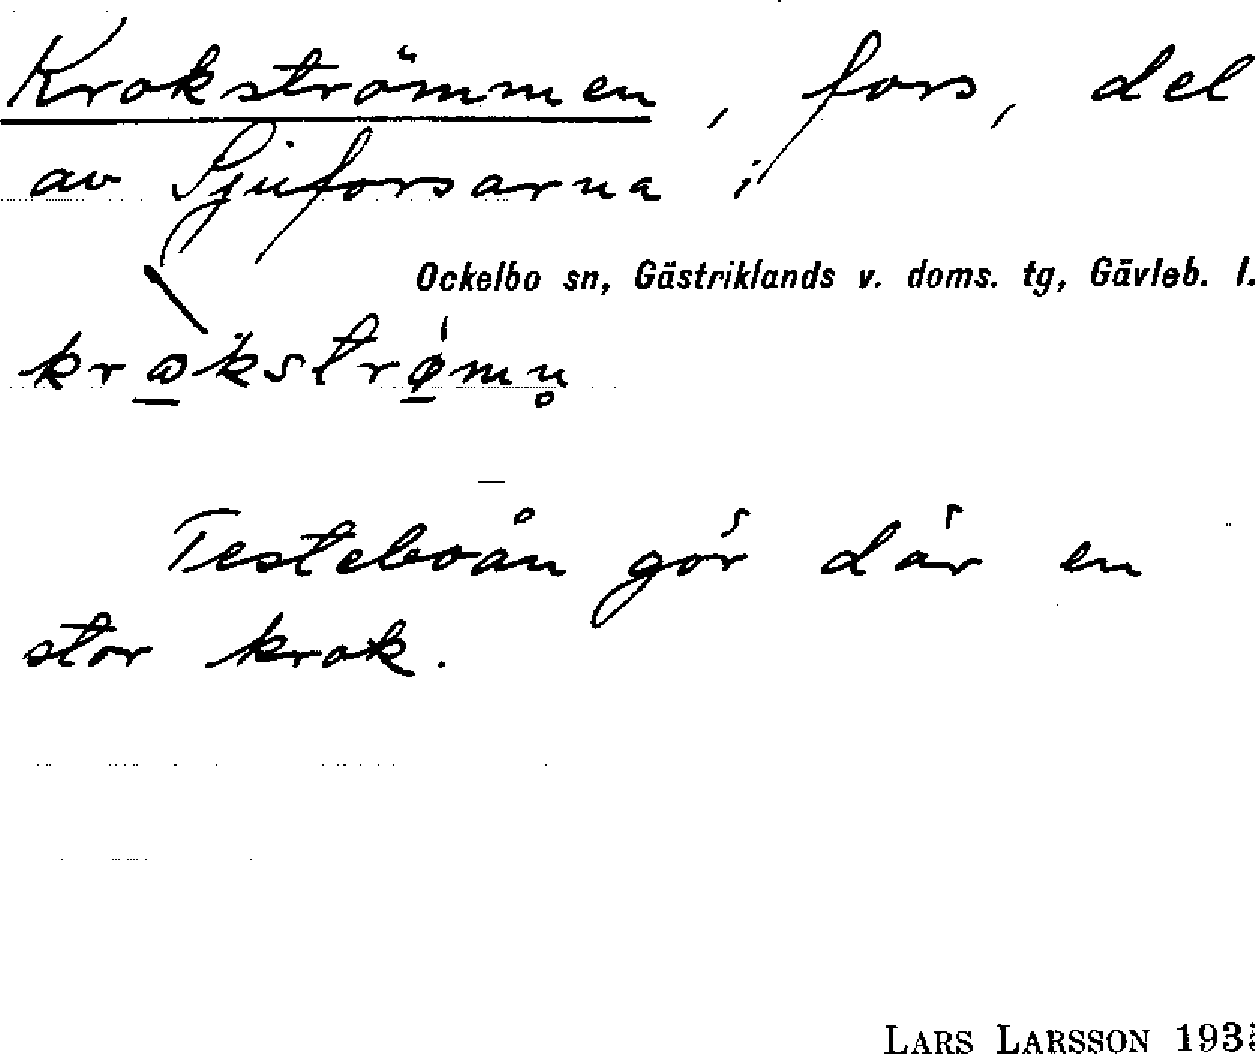 Krokströmmen, fors, del
av Sjuforsarna i
Ockelbo sn, Gästriklands v. doms. tg, Gävleb. l.
Testeboån gör där en
stor krok.
LARS LARSSON